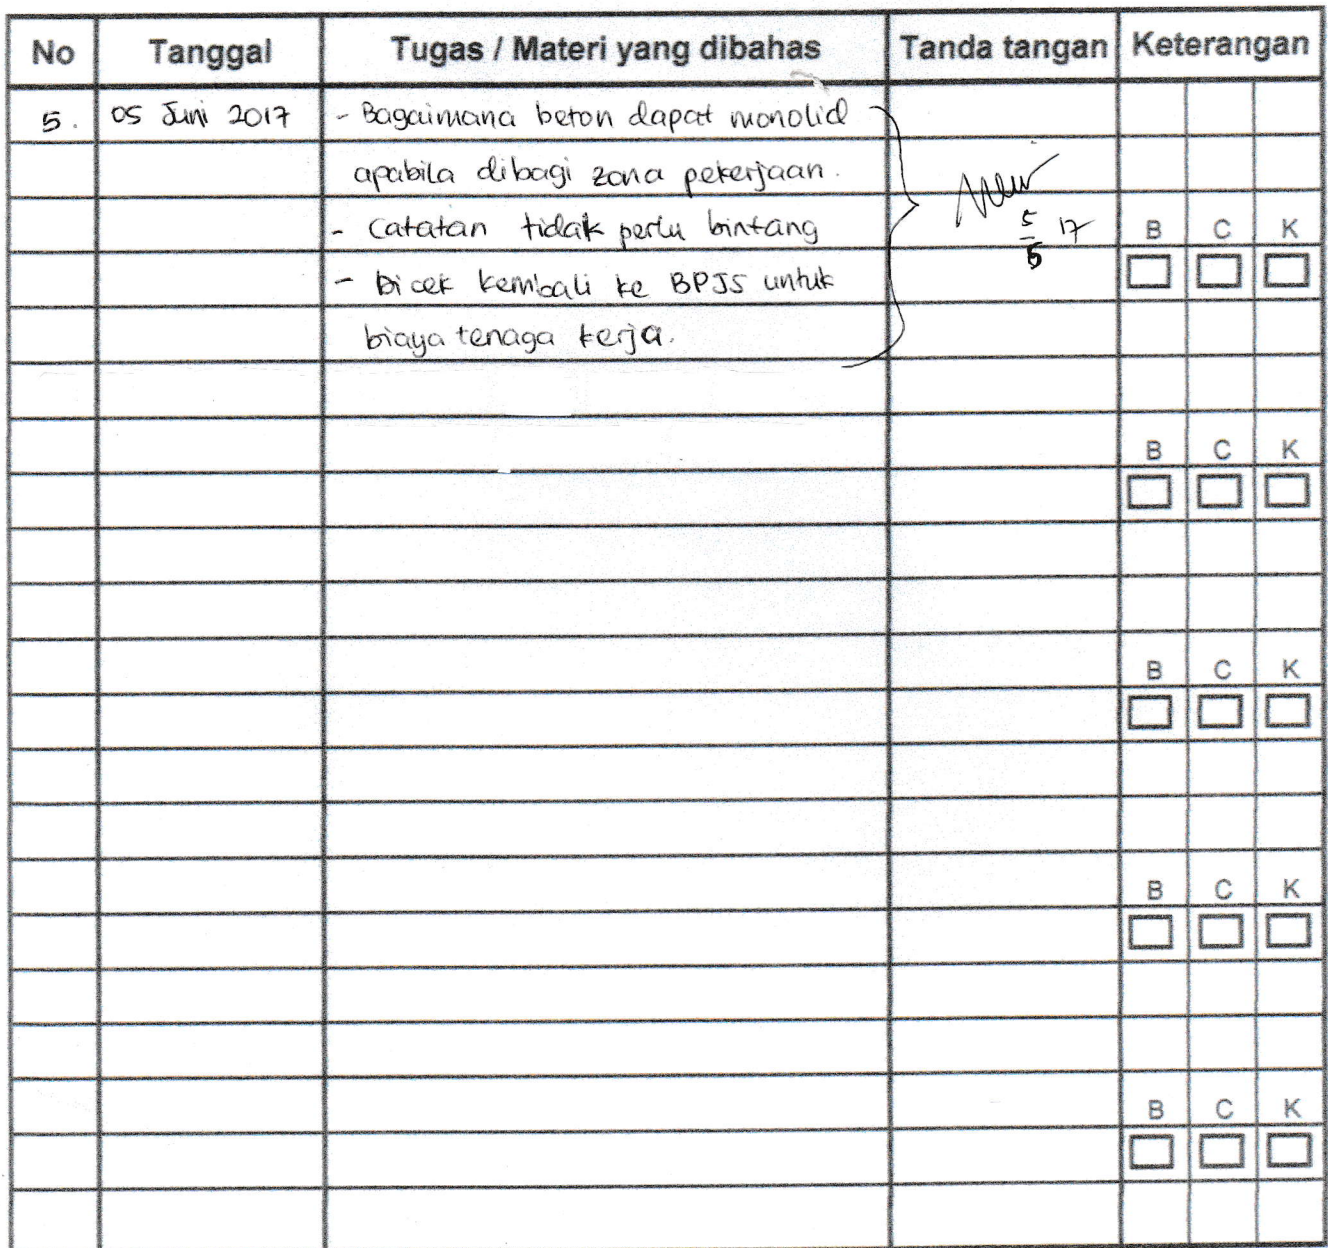 No Tanggal Tugas / Materi yang dibahas Tanda tangan Keterangan
5. 05 Juni 2017 - Bagaimana beton dapat monolid
apabila dibagi zona pekerjaan.
- Catatan tidak perlu bintang
5/5 17
B C K
- Dicek kembali ke BPJS untuk
biaya tenaga kerja.
B C K
B C K
B C K
B C K